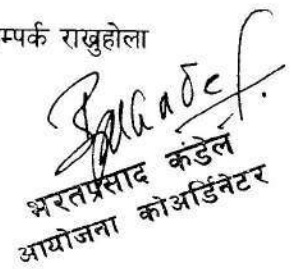 म्पर्क राखुहोला
भरतप्रसाद कंडेल
आयोजना कोअर्डिनेटर